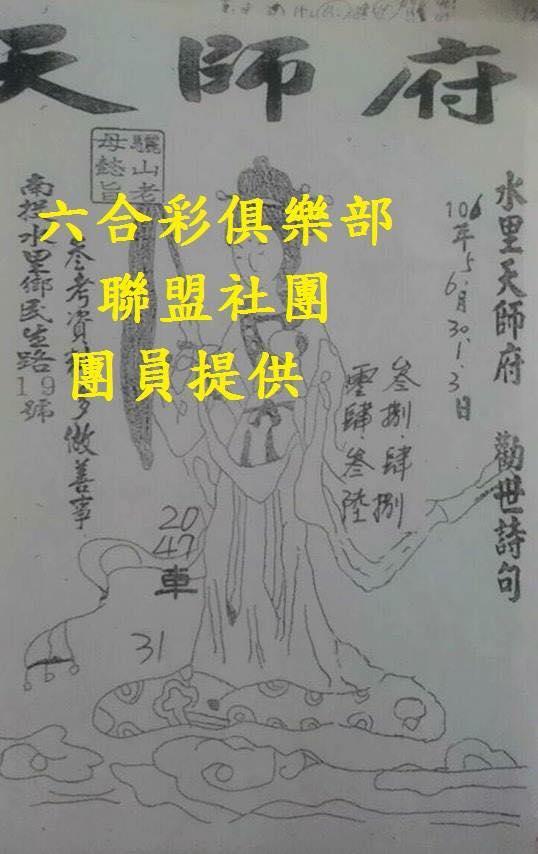 天師府
驪山老
母懿旨
水里天師府 勸世詩句
106年5.6月30.1.3日
叁捌.肆捌
零肆.叁陸
六合彩俱樂部
聯盟社團
團員提供
多做善事
南投水里鄉民生路19號
20
47
車
31